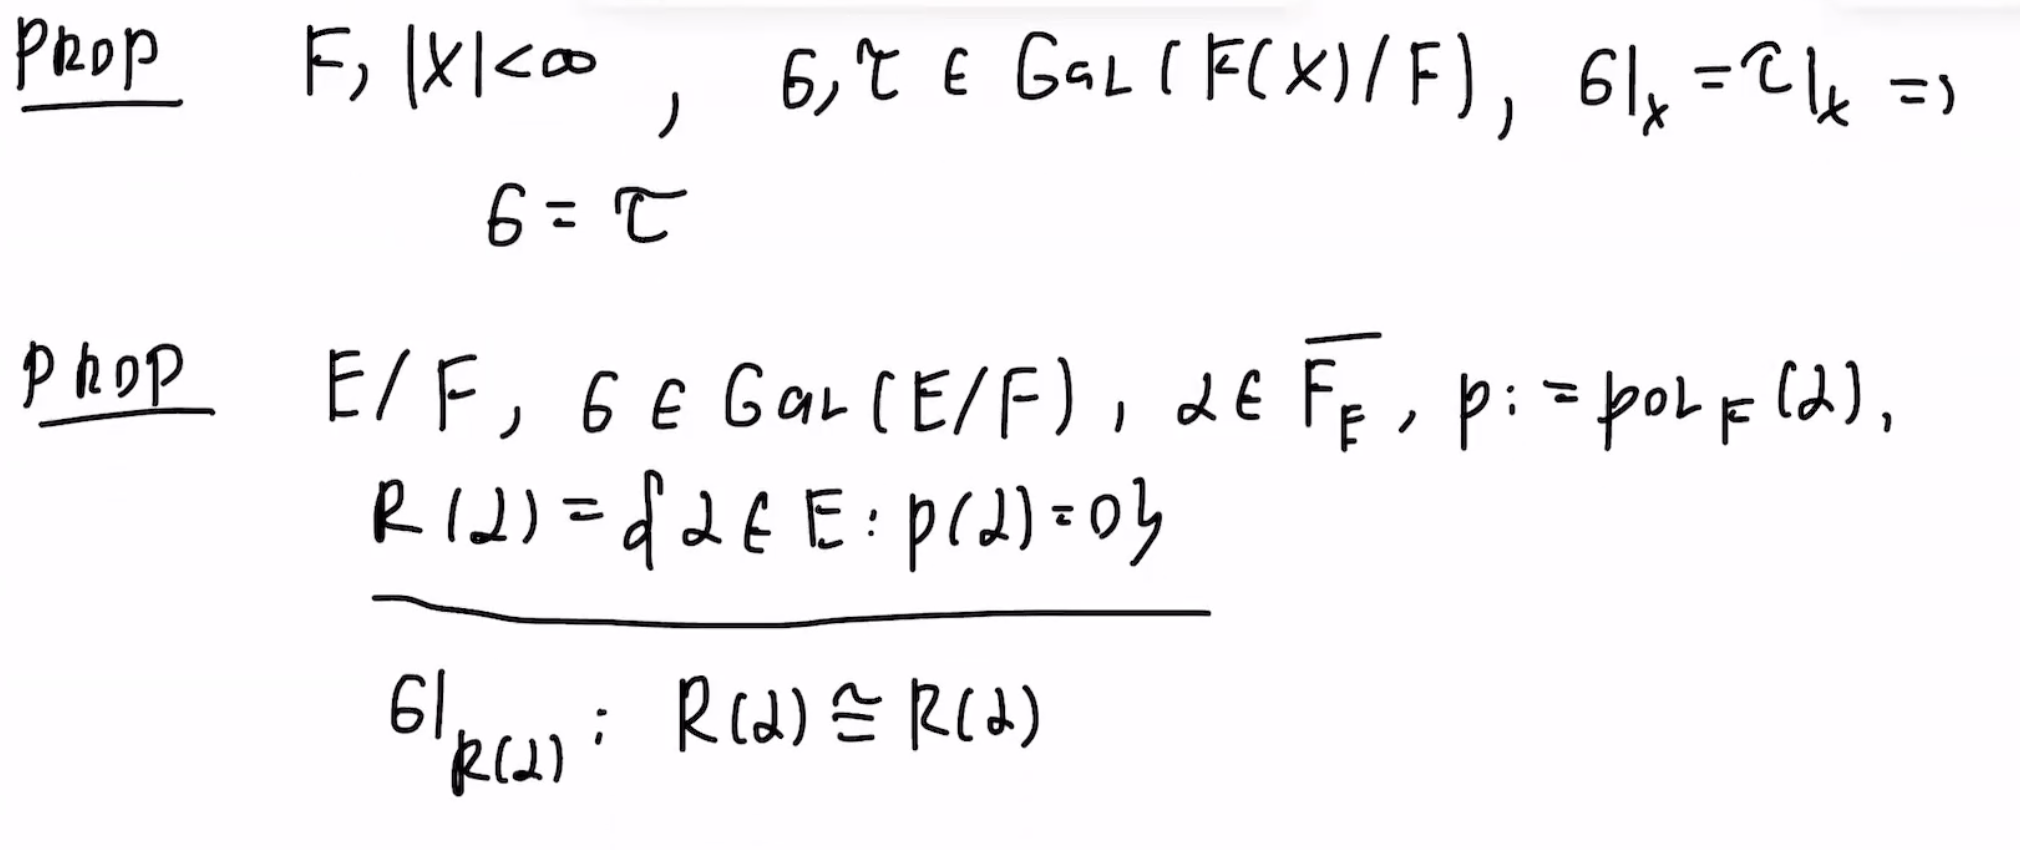 PROP F, |X|<∞, σ, τ ∈ Gal(F(X)/F), σ|ₓ = τ|ₓ =>
σ = τ
PROP E/F, σ ∈ Gal(E/F), α ∈ F̅_E, p := pol_F(α),
R(α) = {α ∈ E : p(α) = 0}
σ|_R(α) : R(α) ≅ R(α)